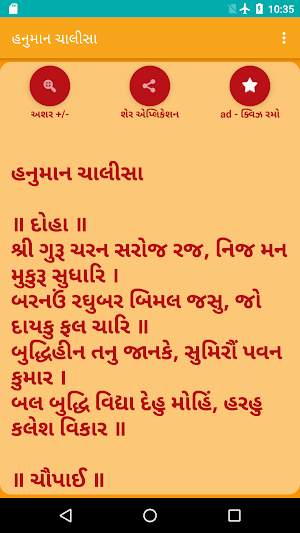 10:35
હનુમાન ચાલીસા
અક્ષર +/-
શેર એપ્લિકેશન
ad - ક્વિઝ રમો
હનુમાન ચાલીસા
॥ દોહા ॥
શ્રી ગુરૂ ચરન સરોજ રજ, નિજ મન
મુકુરૂ સુધારિ ।
બરનઉં રઘુબર બિમલ જસુ, જો
દાયકુ ફલ ચારિ ॥
બુદ્ધિહીન તનુ જાનકે, સુમિરૌં પવન
કુમાર ।
બલ બુદ્ધિ વિદ્યા દેહુ મોહિં, હરહુ
કલેશ વિકાર ॥
॥ ચૌપાઈ ॥